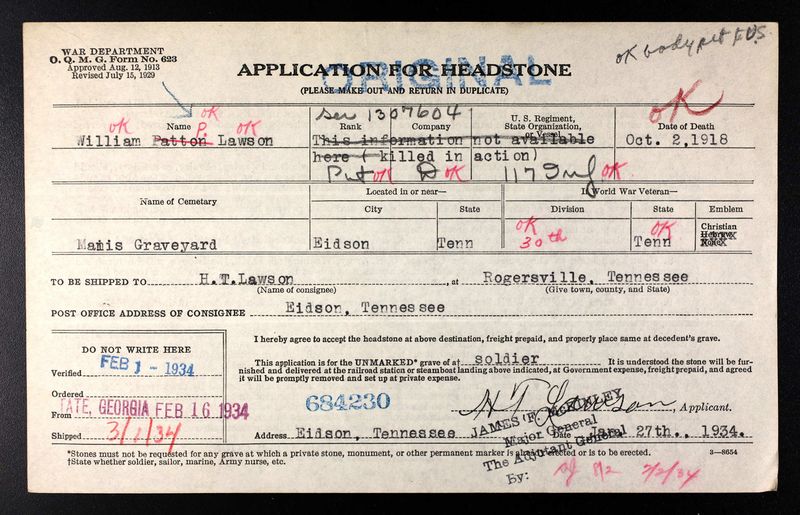 WAR DEPARTMENT
O. Q. M. G. Form No. 623
Approved Aug. 12, 1913
Revised July 15, 1929
ORIGINAL
APPLICATION FOR HEADSTONE
(PLEASE MAKE OUT AND RETURN IN DUPLICATE)
OK body ret E.V.S.
OK OK P. OK
Name
William Patton Lawson
Ser 1307604
Rank Company
U. S. Regiment,
State Organization,
or Vessel
This information not available
here (killed in action)
Pvt OK D OK 117 Inf OK
OK
Date of Death
Oct. 2,1918
Name of Cemetary
Located in or near—
City State
If World War Veteran—
Division State Emblem
Mamis Graveyard
Eidson Tenn
OK
30th
OK
Tenn
Christian
Hebrew
None
TO BE SHIPPED TO H.T.Lawson, at Rogersville, Tennessee
(Name of consignee) (Give town, county, and State)
POST OFFICE ADDRESS OF CONSIGNEE Eidson, Tennessee
DO NOT WRITE HERE
Verified FEB 1 - 1934
Ordered
From TATE, GEORGIA FEB 16 1934
Shipped 3/1/34
I hereby agree to accept the headstone at above destination, freight prepaid, and properly place same at decedent's grave.
This application is for the UNMARKED* grave of a† soldier It is understood the stone will be fur-
nished and delivered at the railroad station or steamboat landing above indicated, at Government expense, freight prepaid, and agree
it will be promptly removed and set up at private expense.
684230
H T Lawson, Applicant.
Address Eidson, Tennessee Date Jan. 27th., 1934.
JAMES F. McKINLEY
Major General
The Adjutant General
By: 2/2/34
*Stones must not be requested for any grave at which a private stone, monument, or other permanent marker is already erected or is to be erected.
†State whether soldier, sailor, marine, Army nurse, etc.
3—8654